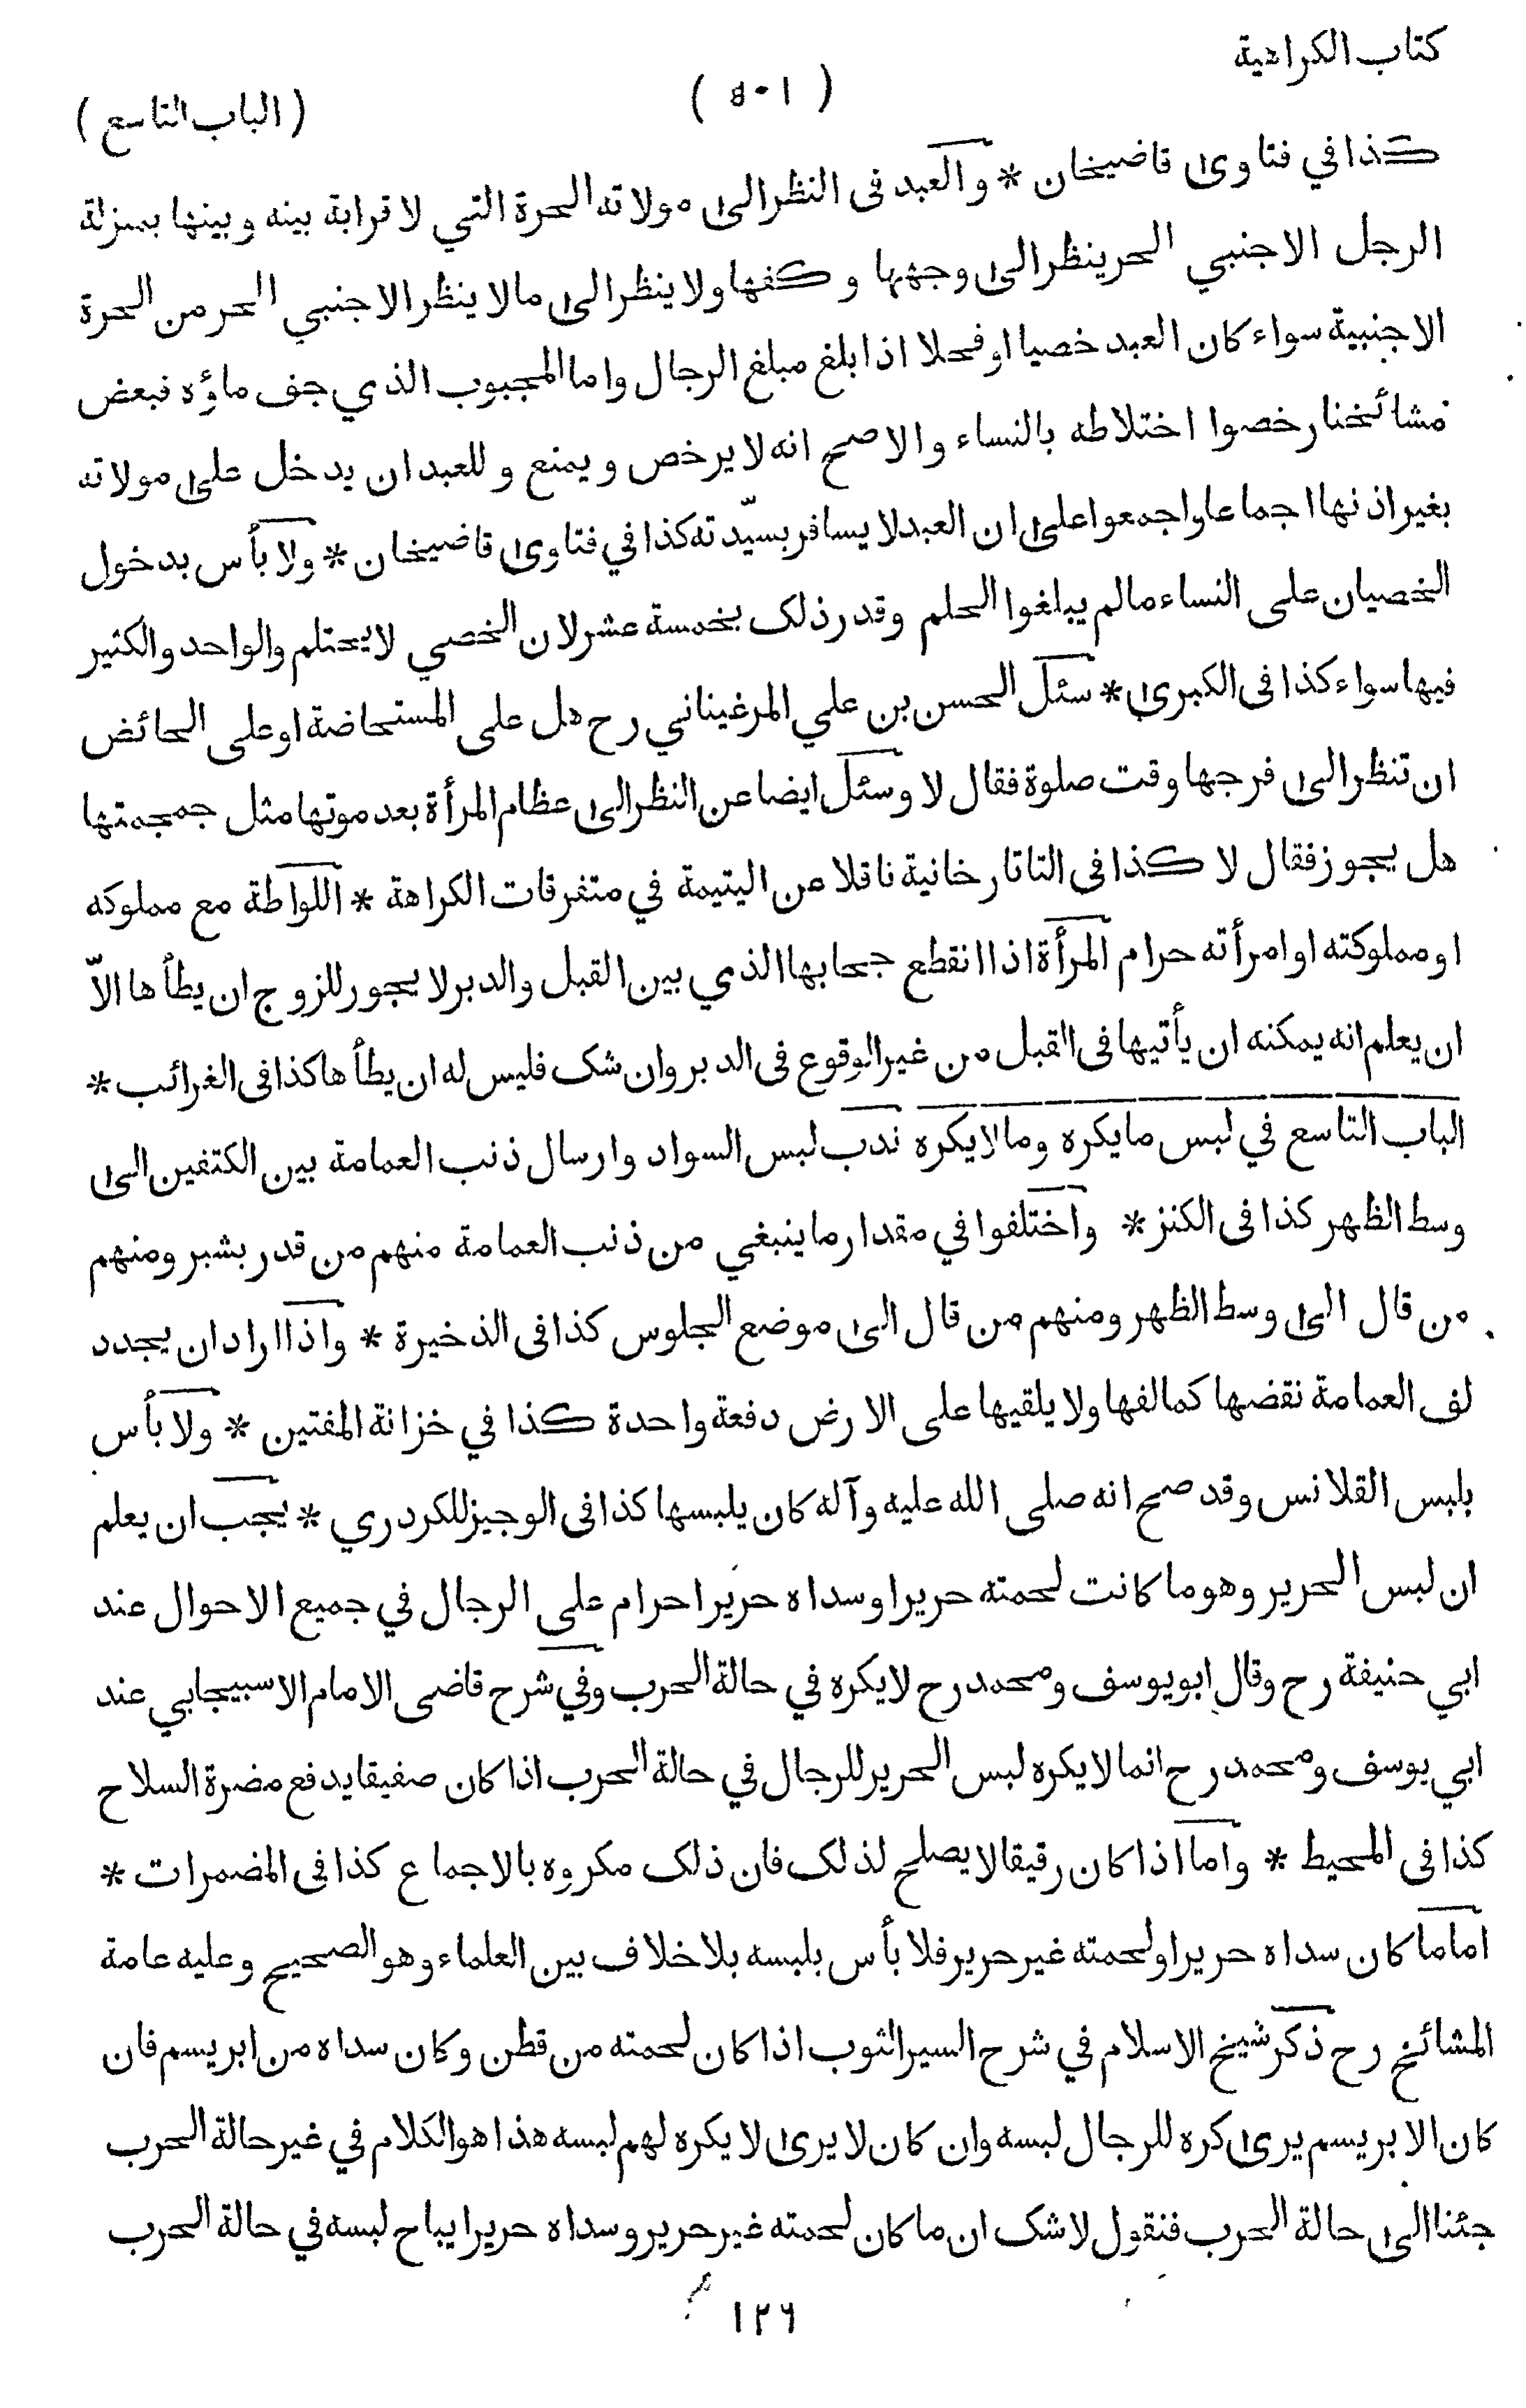 كتاب الكراهية
( ٥٠١ )
( الباب التاسع )
كذا في فتاوى قاضيخان * والعبد فى النظر الى مولاته الحرة التي لا قرابة بينه وبينها بمنزلة
الرجل الاجنبي الحر ينظر الى وجهها وكفها ولا ينظر الى مالا ينظر الاجنبي الحر من الحرة
الاجنبية سواء كان العبد خصيا او فحلا اذا بلغ مبلغ الرجال واما المجبوب الذي جف ماؤه فبعض
مشائخنا رخصوا اختلاطه بالنساء والاصح انه لا يرخص ويمنع وللعبد ان يدخل على مولاته
بغير اذنها اجماعا واجمعوا على ان العبد لا يسافر بسيّدته كذا في فتاوى قاضيخان * ولا بأس بدخول
الخصيان على النساء مالم يبلغوا الحلم وقدر ذلك بخمسة عشر لان الخصي لا يحتلم والواحد والكثير
فيها سواء كذا فى الكبرى * سئل الحسن بن علي المرغيناني رح هل على المستحاضة او على الحائض
ان تنظر الى فرجها وقت صلوة فقال لا وسئل ايضا عن النظر الى عظام المرأة بعد موتها مثل جمجمتها
هل يجوز فقال لا كذا فى التاتارخانية ناقلا عن اليتيمة في متفرقات الكراهة * اللواطة مع مملوكه
او مملوكته او امرأته حرام المرأة اذا انقطع حجابها الذي بين القبل والدبر لا يجوز للزوج ان يطأها الاّ
ان يعلم انه يمكنه ان يأتيها فى القبل من غير الوقوع فى الدبر وان شك فليس له ان يطأها كذا فى الغرائب *
الباب التاسع في لبس ما يكره وما لا يكره ندب لبس السواد وارسال ذنب العمامة بين الكتفين الى
وسط الظهر كذا فى الكنز * واختلفوا في مقدار ما ينبغي من ذنب العمامة منهم من قدر بشبر ومنهم
من قال الى وسط الظهر ومنهم من قال الى موضع الجلوس كذا فى الذخيرة * واذا اراد ان يجدد
لف العمامة نقضها كما لفها ولا يلقيها على الارض دفعة واحدة كذا في خزانة المفتين * ولا بأس
بلبس القلانس وقد صح انه صلى الله عليه وآله كان يلبسها كذا فى الوجيز للكردري * يجب ان يعلم
ان لبس الحرير وهو ما كانت لحمته حريرا وسداه حريرا حرام على الرجال في جميع الاحوال عند
ابي حنيفة رح وقال ابو يوسف ومحمد رح لا يكره في حالة الحرب وفي شرح قاضى الامام الاسبيجابي عند
ابي يوسف ومحمد رح انما لا يكره لبس الحرير للرجال في حالة الحرب اذا كان صفيقا يدفع مضرة السلاح
كذا فى المحيط * واما اذا كان رقيقا لا يصلح لذلك فان ذلك مكروه بالاجماع كذا فى المضمرات *
اما ما كان سداه حريرا ولحمته غير حرير فلا بأس بلبسه بلا خلاف بين العلماء وهو الصحيح وعليه عامة
المشائخ رح ذكر شيخ الاسلام في شرح السير الثوب اذا كان لحمته من قطن وكان سداه من ابريسم فان
كان الابريسم يرى كره للرجال لبسه وان كان لا يرى لا يكره لهم لبسه هذا هو الكلام في غير حالة الحرب
جئنا الى حالة الحرب فنقول لا شك ان ما كان لحمته غير حرير وسداه حريرا يباح لبسه في حالة الحرب
١٢٦